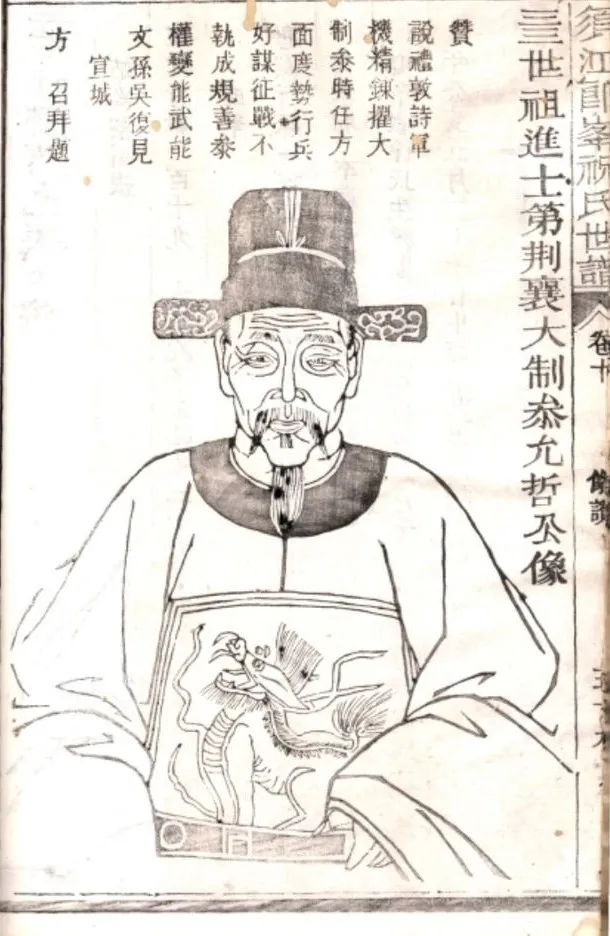 須江郎峯祝氏世譜
卷十
像讚
三三世祖進士第荊襄大制叅允哲公像
贊
說禮敦詩軍
機精鍊擢大
制叅時任方
面度勢行兵
好謀征戰不
執成規善叅
權變能武能
文孫吳復見
宣城
方 召拜題